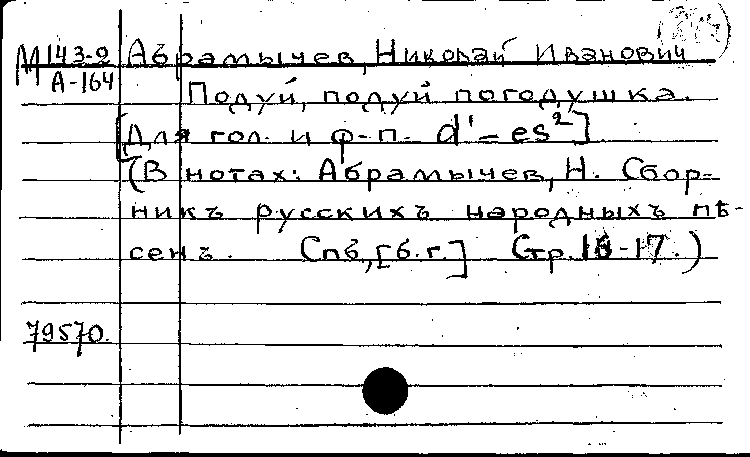 М 143-2 Абрамычев, Николай Иванович
А-164
Подуй, подуй погодушка.
[Для гол. и ф-п. d¹–es²]
(В нотах: Абрамычев, Н. Сбор-
никъ русскихъ народныхъ пѣ-
сенъ. Спб, [б.г.] Стр. 16-17.)
79570.